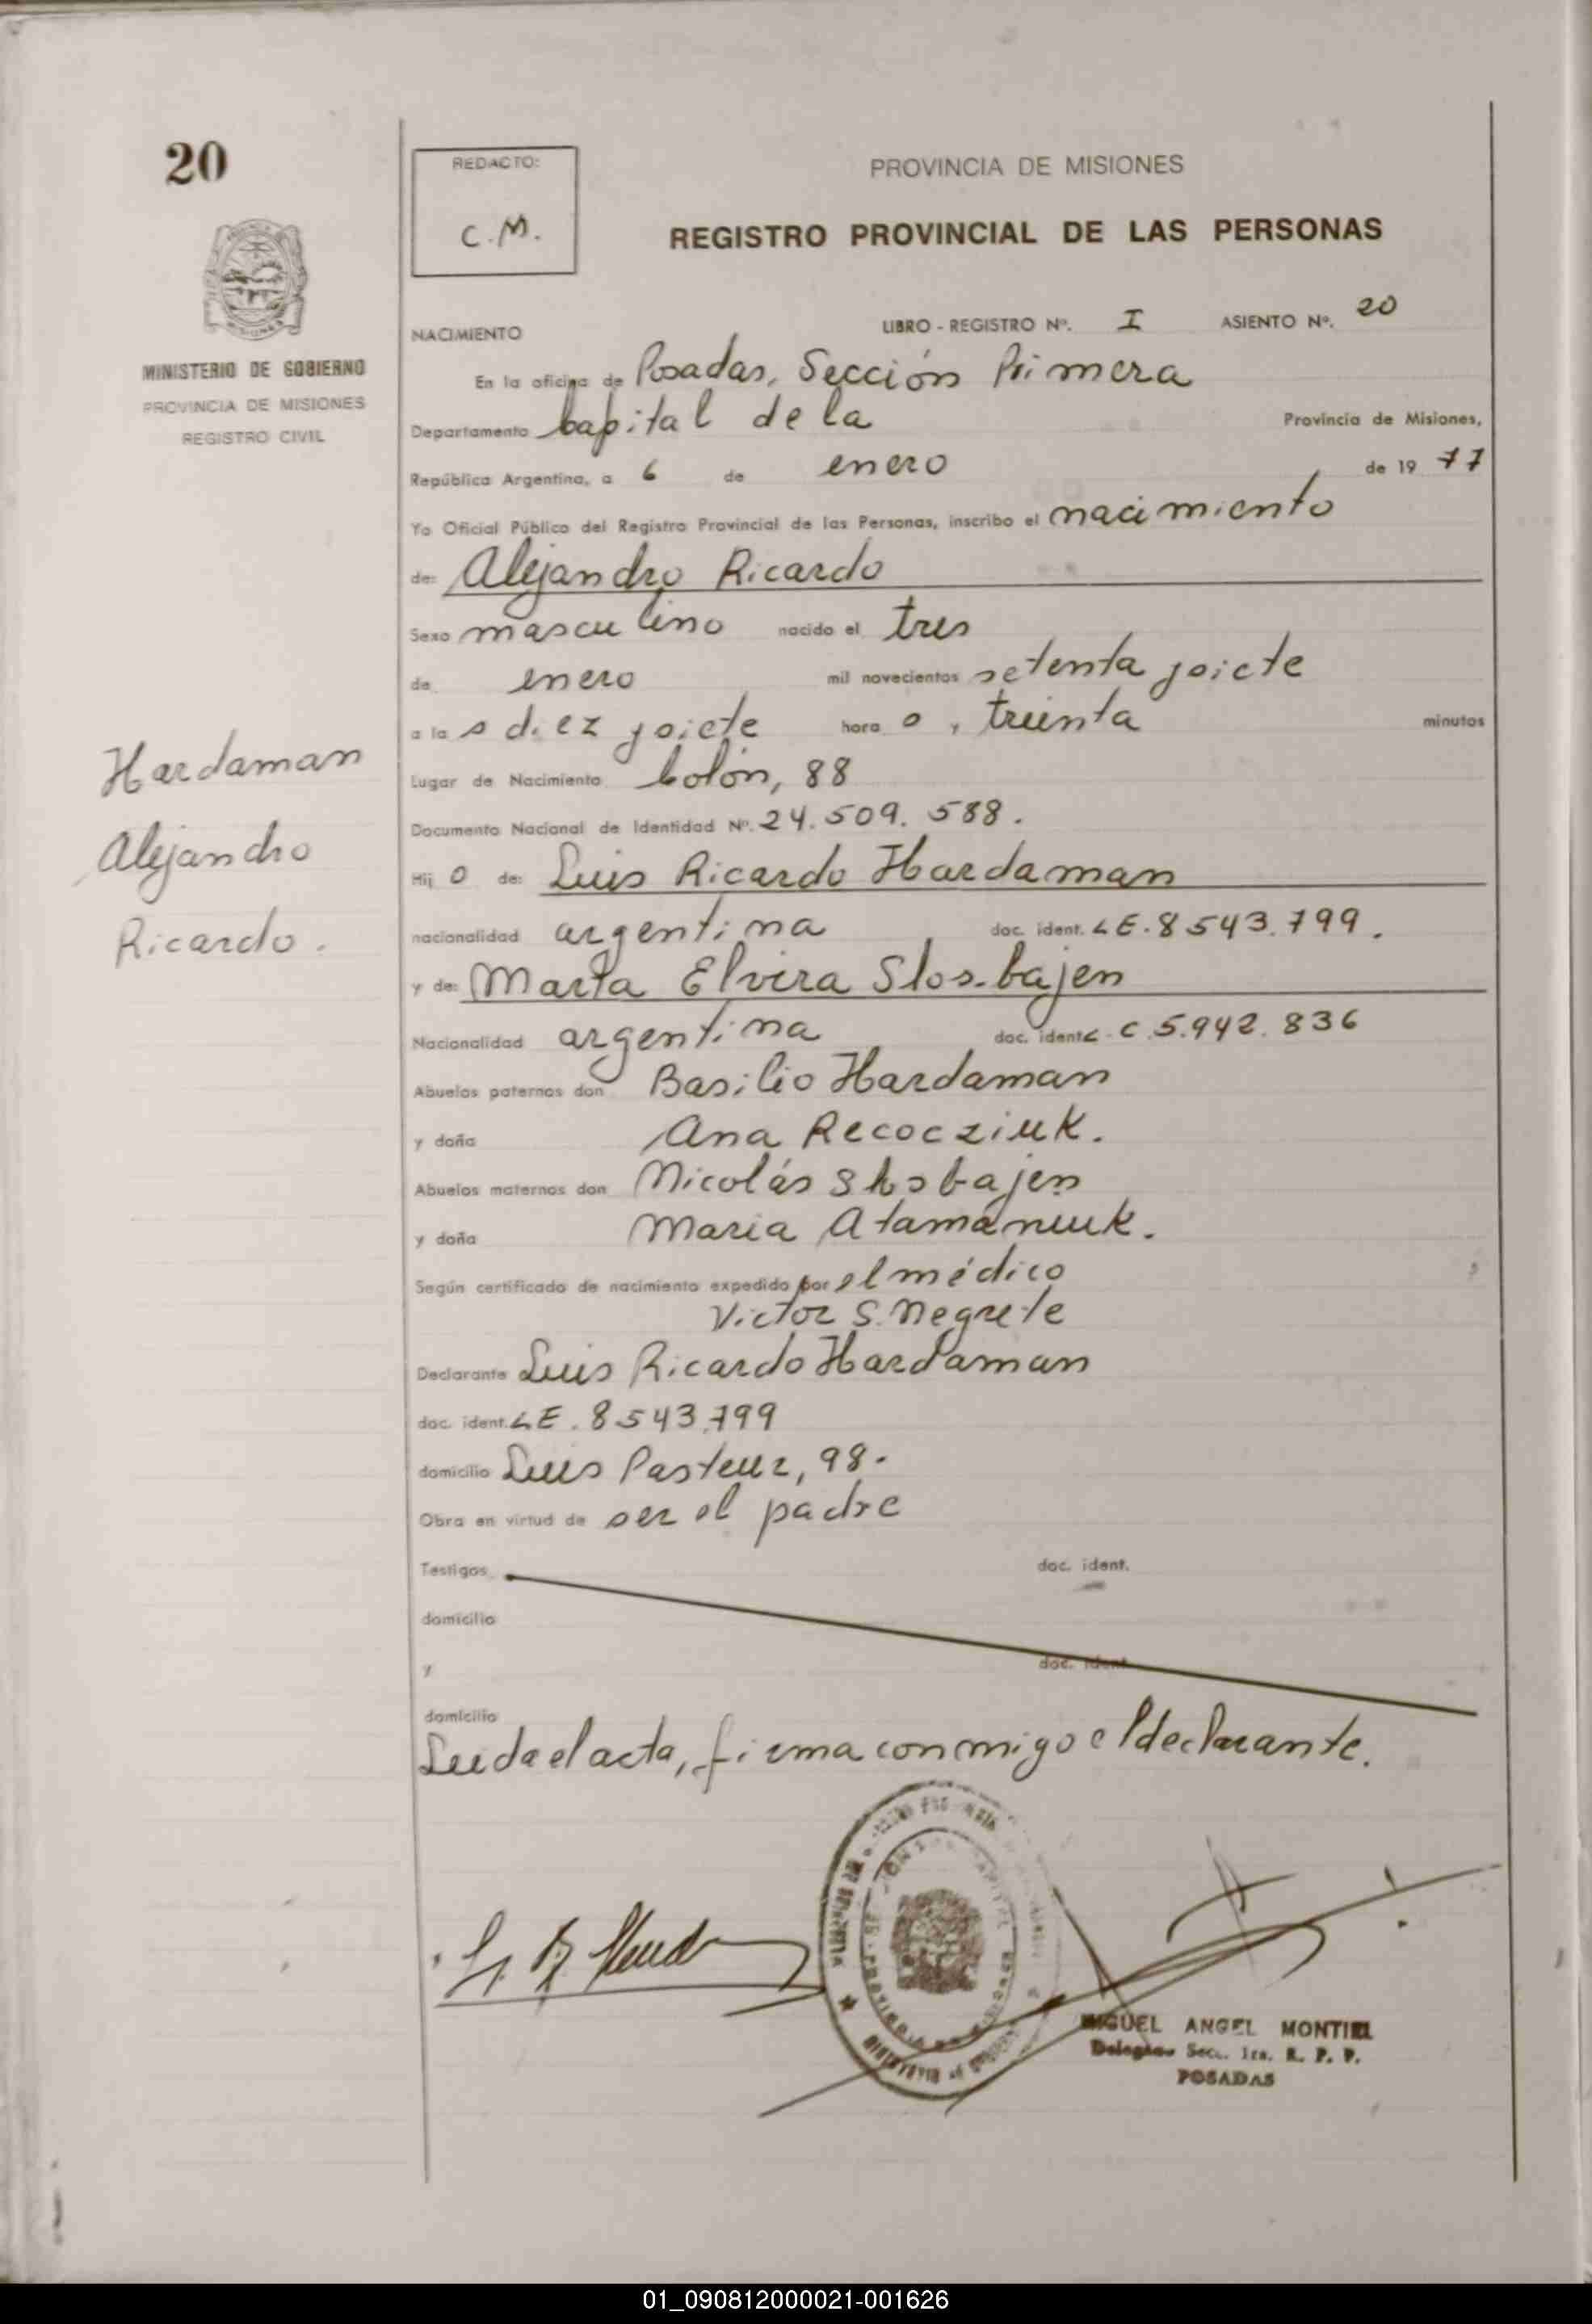 20
REDACTO:
C.M.
PROVINCIA DE MISIONES
REGISTRO PROVINCIAL DE LAS PERSONAS
MINISTERIO DE GOBIERNO
PROVINCIA DE MISIONES
REGISTRO CIVIL
NACIMIENTO
LIBRO - REGISTRO Nº. I ASIENTO Nº. 20
En la oficina de Posadas, Sección Primera
Departamento Capital de la Provincia de Misiones,
República Argentina, a 6 de enero de 19 77
Yo Oficial Público del Registro Provincial de las Personas, inscribo el nacimiento
de: Alejandro Ricardo
Sexo masculino nacido el tres
de enero mil novecientos setenta y siete
a las diez y siete hora o, treinta minutos
Lugar de Nacimiento Colón, 88
Documento Nacional de Identidad Nº. 24.509.588.
Hij o de: Luis Ricardo Hardaman
nacionalidad argentina doc. ident. LE. 8543.799.
y de: Marta Elvira Slosbajen
Nacionalidad argentina doc. ident. L.C. 5.942.836
Abuelos paternos don Basilio Hardaman
y doña Ana Recocziuk.
Abuelos maternos don Nicolás Slosbajen
y doña Maria Atamaniuk.
Según certificado de nacimiento expedido por el médico
Victor S. Negrete
Declarante Luis Ricardo Hardaman
doc. ident. LE. 8543.799
domicilio Luis Pasteur, 98.
Obra en virtud de ser el padre
Testigos doc. ident.
domicilio
y doc. ident.
domicilio
Leida el acta, firma conmigo el declarante.
Hardaman
Alejandro
Ricardo.
MIGUEL ANGEL MONTIEL
Delegado Secc. 1ra. R. P. P.
POSADAS
01_090812000021-001626